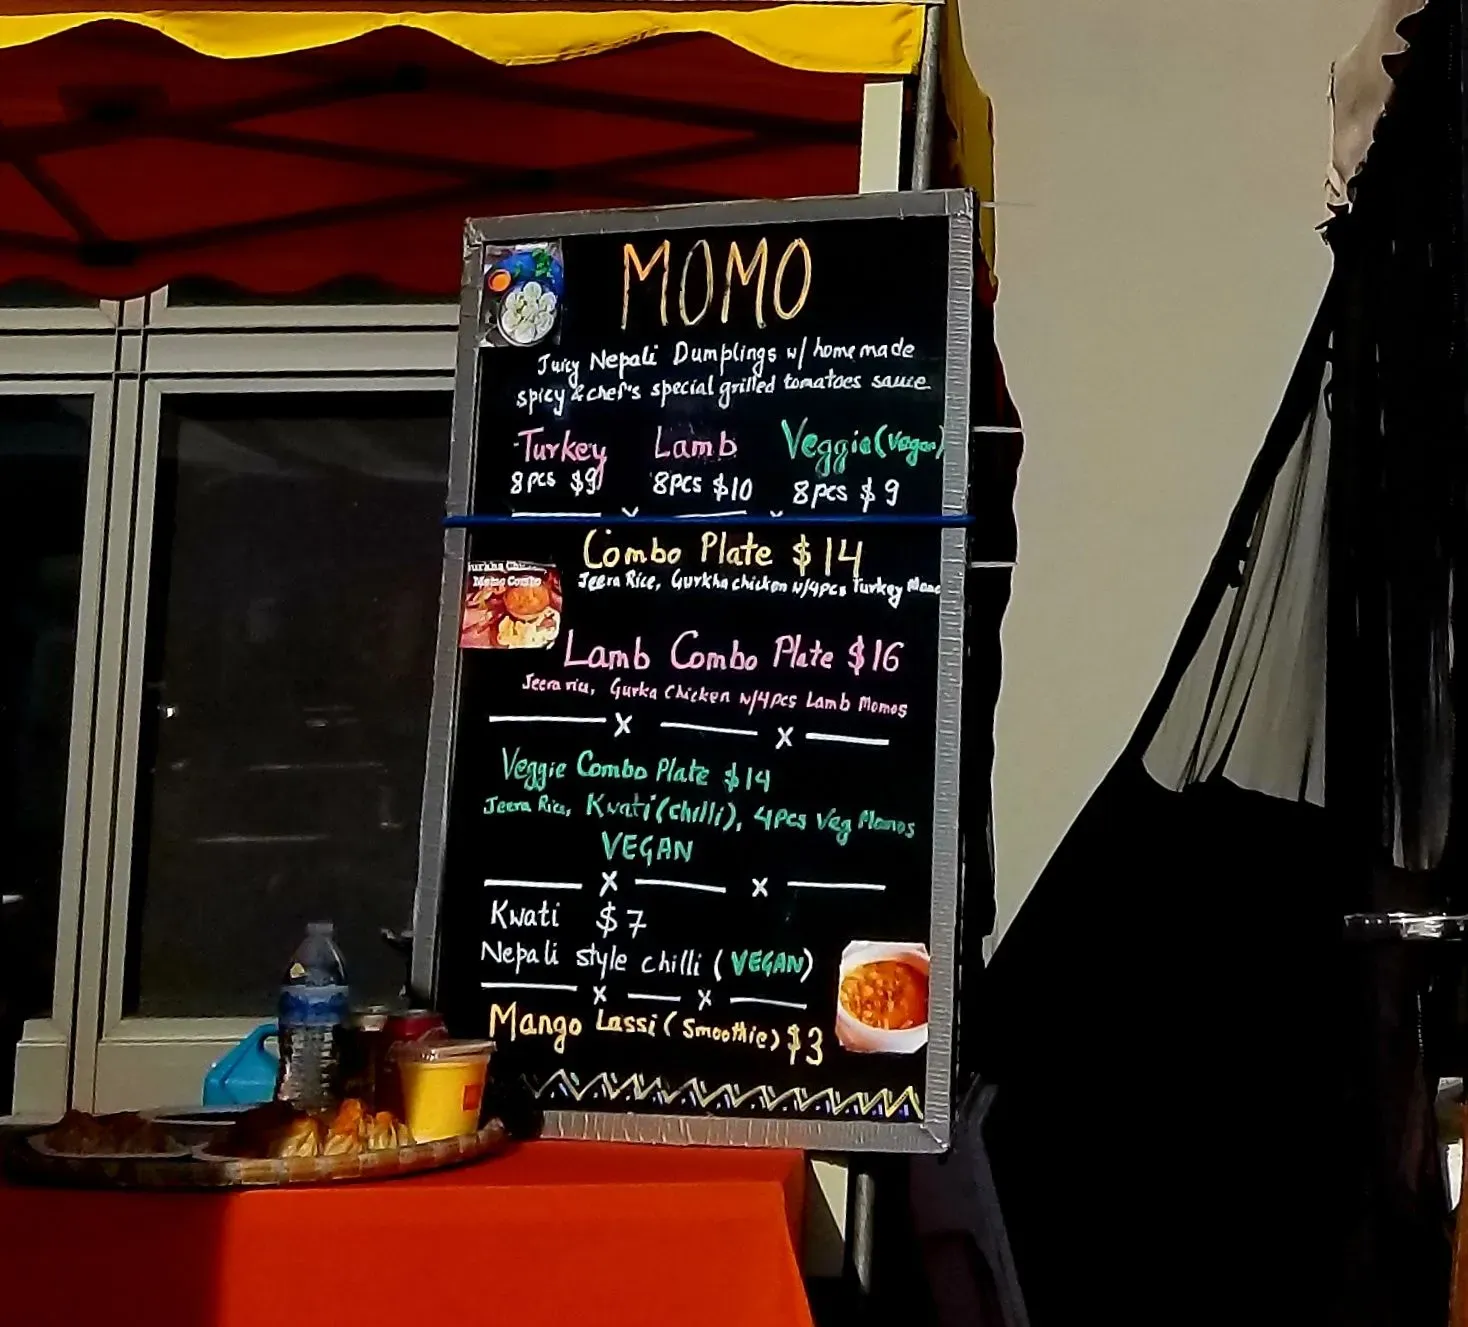 MOMO
Juicy Nepali Dumplings w/ home made
spicy & chef's special grilled tomatoes sauce
Turkey Lamb Veggie (Vegan)
8pcs $9 8pcs $10 8pcs $9
Combo Plate $14
Momo Combo
Jeera Rice, Gurkha chicken w/4pcs Turkey Momo
Lamb Combo Plate $16
Jeera rice, Gurka Chicken w/4pcs Lamb Momos
x x
Veggie Combo Plate $14
Jeera Rice, Kwati (chilli), 4pcs Veg Momos
VEGAN
x x
Kwati $7
Nepali style chilli (VEGAN)
x x
Mango Lassi (Smoothie) $3